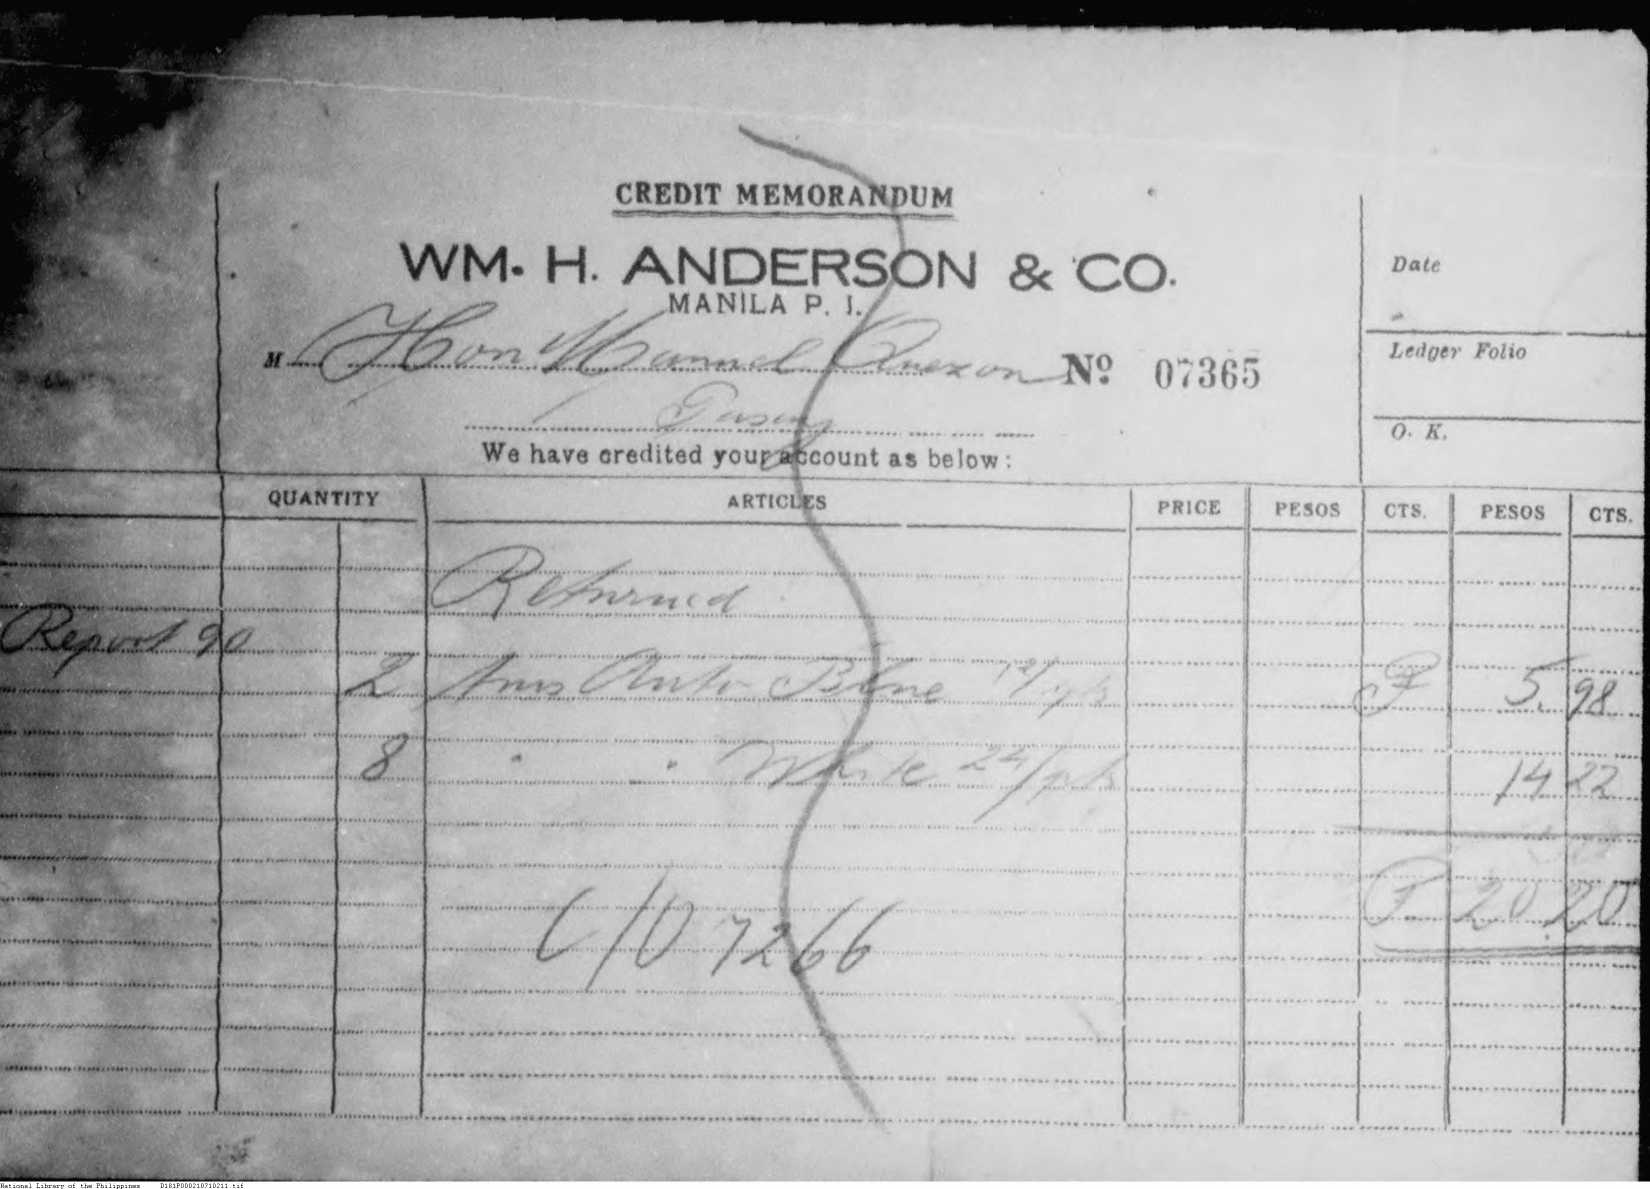 CREDIT MEMORANDUM
WM. H. ANDERSON & CO.
MANILA P. I.
Date
M Hon Manuel Quezon Nº 07365
Ledger Folio
Pasay
O. K.
We have credited your account as below:
QUANTITY ARTICLES PRICE PESOS CTS. PESOS CTS.
Returned
Report 90
2 Auto Blue 12/ ₱ 5.98
8 " " White 24/ 14 22
₱ 20 20
C/O 7266
National Library of the Philippines D181P000210710211.tif